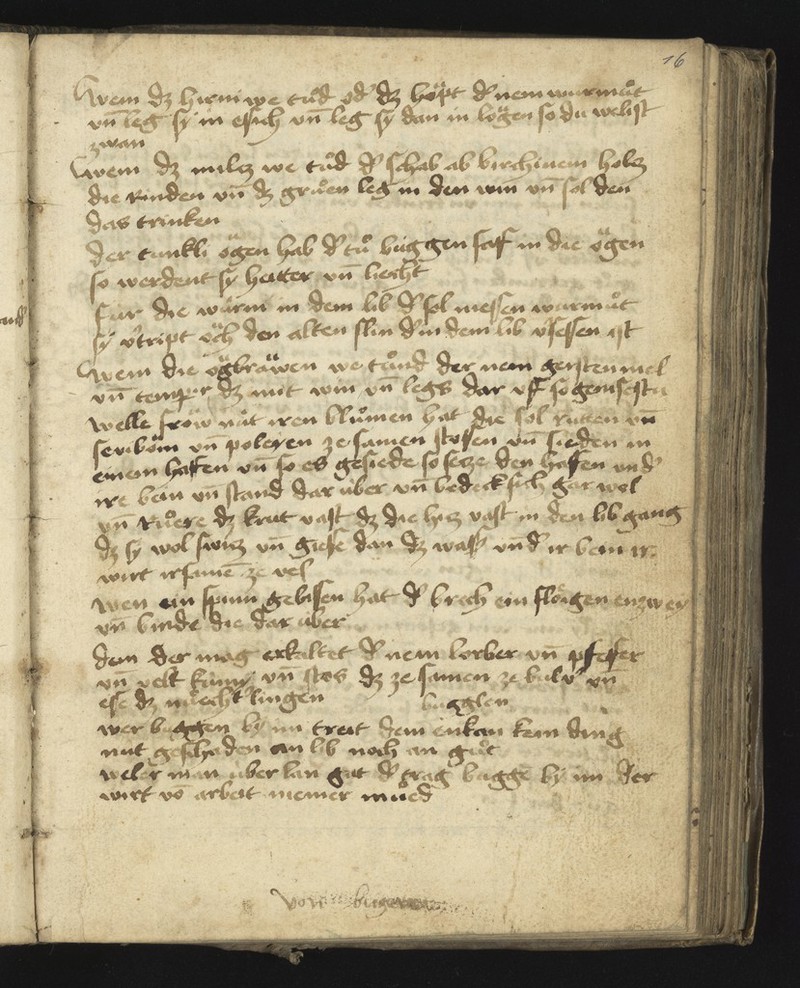 16
wem dz hirni we tůd od' dz höpt d' nem wurmůt
vn̄ leg sy in esich vn̄ leg sy dan in lögen so du welist
zwan
wem dz milcz we tůd d' schab ab birchinem holcz
die rinden vn̄ dz grůen leg in den win vn̄ sol den
das trinken
der tunkli ögen hab d' tů buggen saf in die ögen
so werdent sy heitter vn̄ liecht
fúr die wúrm in dem lib d' sol niessen wurmůt
sy v'tript öch den alten slin d' in dem lib v'sessen ist
wem die ögbräwen we tůnd der nem gerstenmel
vn̄ temper dz mit win vn̄ legs dar vf so genisestu
welle fröw nüt iren blůmen hat die sol rutten vn̄
seuiböm vn̄ poleyen ze samen stossen vn̄ sieden in
einem haffen vn̄ so es gesiede so secze den haffen vnd'
ire bein vn̄ stand dar über vn̄ bedeck sich gar wol
vn̄ růere dz krut vast dz die hicz vast in den lib gang
dz sy wol swicz vn̄ giesse dan dz wass' vnd' ir bein ir
wirt
wen ein spinn gebissen hat d' brech ein flöigen enzwey
vn̄ binde die dar über
dem der mag erkaltet d' nem lorber vn̄ pfeffer
vn̄ velt kúmy vn̄ stos dz ze samen ze bulu' vn̄
esse dz nüecht'lingen
bugglen
wer buggen by im treit dem enkan kein ding
nüt geschaden an lib noch an gůt
weler man über lan gat d' trag bugge by im der
wirt vō arbeit niemer můed
von